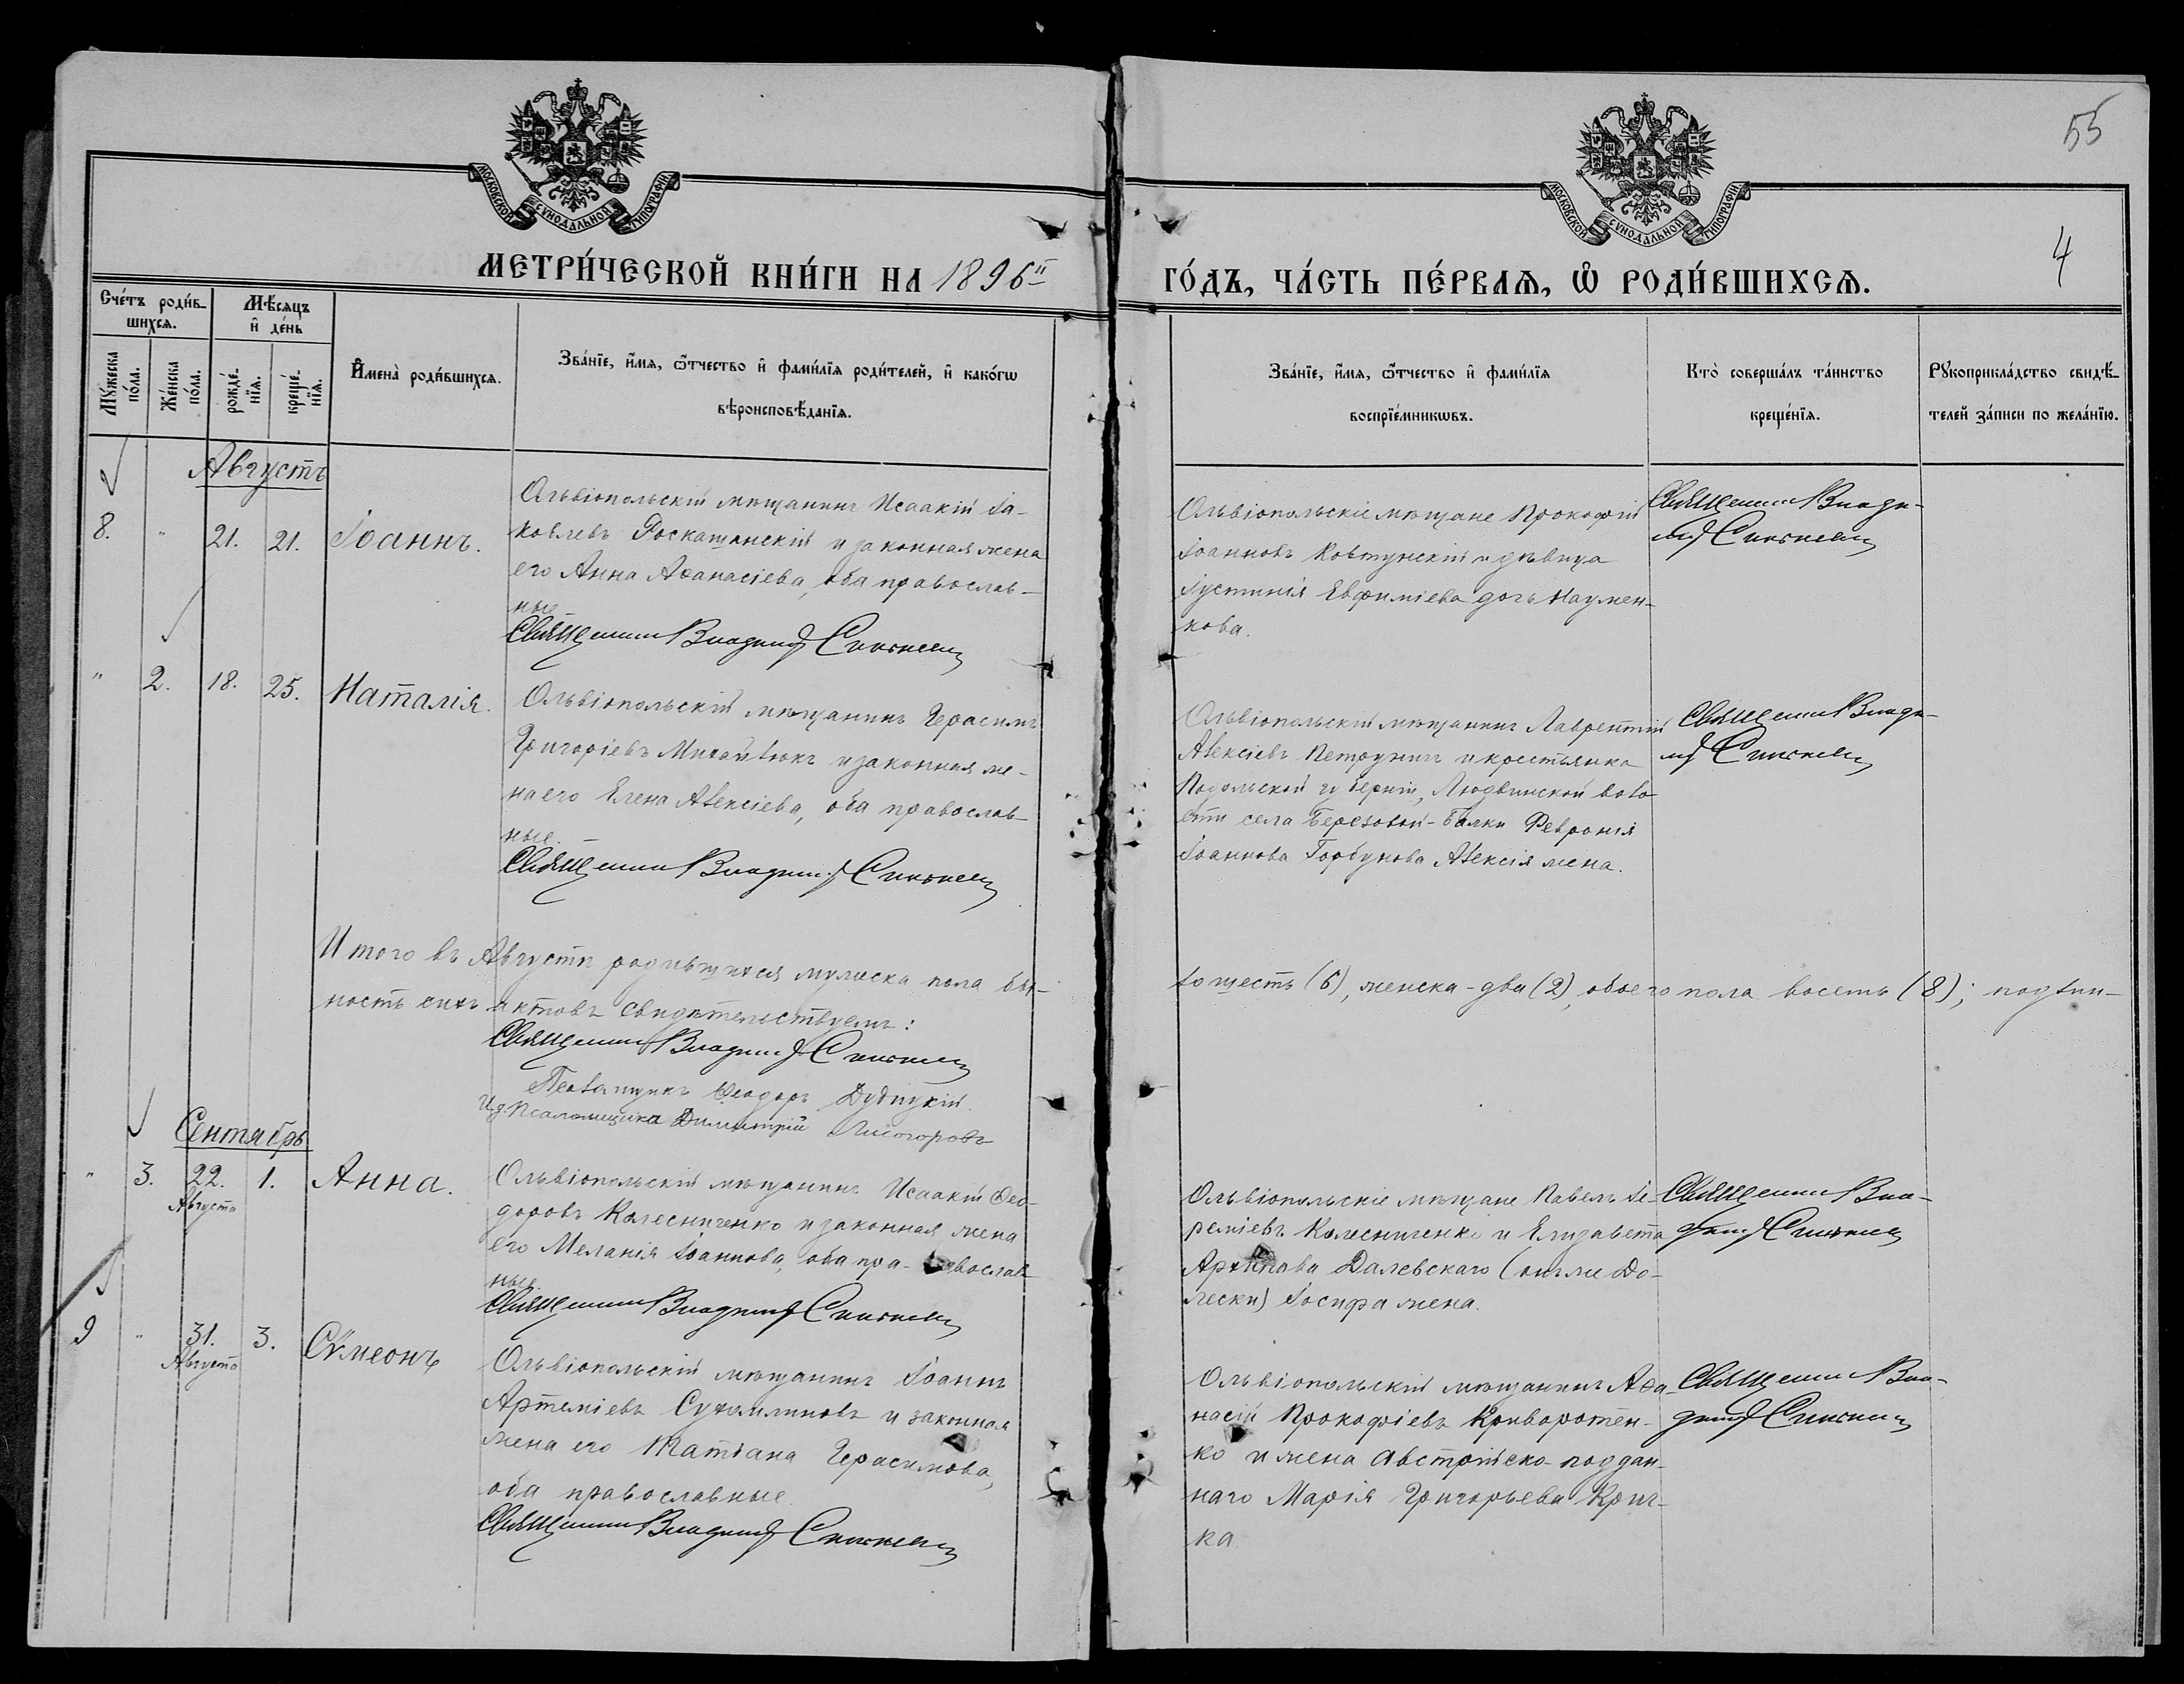 55
4
МОСКОВСКОЙ СѴНОДАЛЬНОЙ ТИПОГРАФІИ
МОСКОВСКОЙ СѴНОДАЛЬНОЙ ТИПОГРАФІИ
МЕТРИ́ЧЕСКОЙ КНИ́ГИ НА 1896й
ГО́ДЪ, ЧА́СТЬ ПЕ́РВАѦ, Ѿ РОДИ́ВШИХСѦ.
Сче́тъ роди́в-
шихсѧ.
Мѣ́сѧцъ
и҆ де́нь
Мꙋ́жеска
по́ла.
Же́нска
по́ла.
рожде́-
нїѧ.
креще́-
нїѧ.
И҆мена̀ роди́вшихсѧ.
Зва́нїе, и҆́мѧ, ѻ҆́тчество и҆ фами́лїѧ роди́телей, и҆ како́гѡ
вѣроисповѣ́данїѧ.
Зва́нїе, и҆́мѧ, ѻ҆́тчество и҆ фами́лїѧ
воспрїе́мникѡвъ.
Кто̀ соверша́лъ та́инство
креще́нїѧ.
Рꙋкоприкла́дство свидѣ́-
телей за́писи по жела́нїю.
Августъ
8. " 21. 21. Іоаннъ.
Ольвіопольскій мѣщанинъ Исаакій Іа-
ковлевъ Роскащанскій и законная жена
его Анна Аѳанасіева, оба православ-
ные
Священникъ Владимір
Ольвіопольскіе мѣщане Прокофій
Іоанновъ Ковтунскій и дѣвица
Іустинія Евфиміева дочь Наумен-
кова.
Священникъ Влади-
мір
" 2. 18. 25. Наталія.
Ольвіопольскій мѣщанинъ Герасимъ
Григоріевъ Михайлюкъ и законная же-
на его Елена Алексіева, оба православ-
ные.
Священникъ Владимір
Ольвіопольскій мѣщанинъ Лаврентій
Алексіевъ Петрунинъ и крестьянка
Подольской губерніи, Людвинской воло-
сти села Березовой-Балки Февронія
Іоаннова Горбунова Алексія жена.
Священникъ Влади-
мір
Итого въ Августѣ родившихся мужеска пола бы-
ло шесть (6), женска - два (2), обоего пола восемь (8); подлин-
ность сихъ актовъ свидѣтельствуемъ:
Священникъ Владимір
Псаломщикъ Ѳеодоръ Дудицкій.
И. д. Псаломщика Димитрій Лисогоровъ
Сентябрь
" 3. 22. 1. Анна.
Августа
Ольвіопольскій мѣщанинъ Исаакій Ѳео-
доровъ Колесниченко и законная жена
его Меланія Іоаннова, оба пра- вослав-
ные.
Священникъ Владимір
Ольвіопольскіе мѣщане Павелъ Іе-
реміевъ Колесниченко и Елизавета
Архипова Далевскаго (онъ же До-
лески) Іосифа жена.
Священникъ Вла-
димір
9 " 31. 3. Сѵмеонъ
Августа
Ольвіопольскій мѣщанинъ Іоаннъ
Артеміевъ Сухомлиновъ и законная
жена его Татіана Герасимова,
оба православные.
Священникъ Владимір
Ольвіопольскій мѣщанинъ Аѳа-
насій Прокофіевъ Криворотен-
ко и жена Австрійско-поддан-
наго Марія Григорьева Криг-
ка
Священникъ Вла-
димір